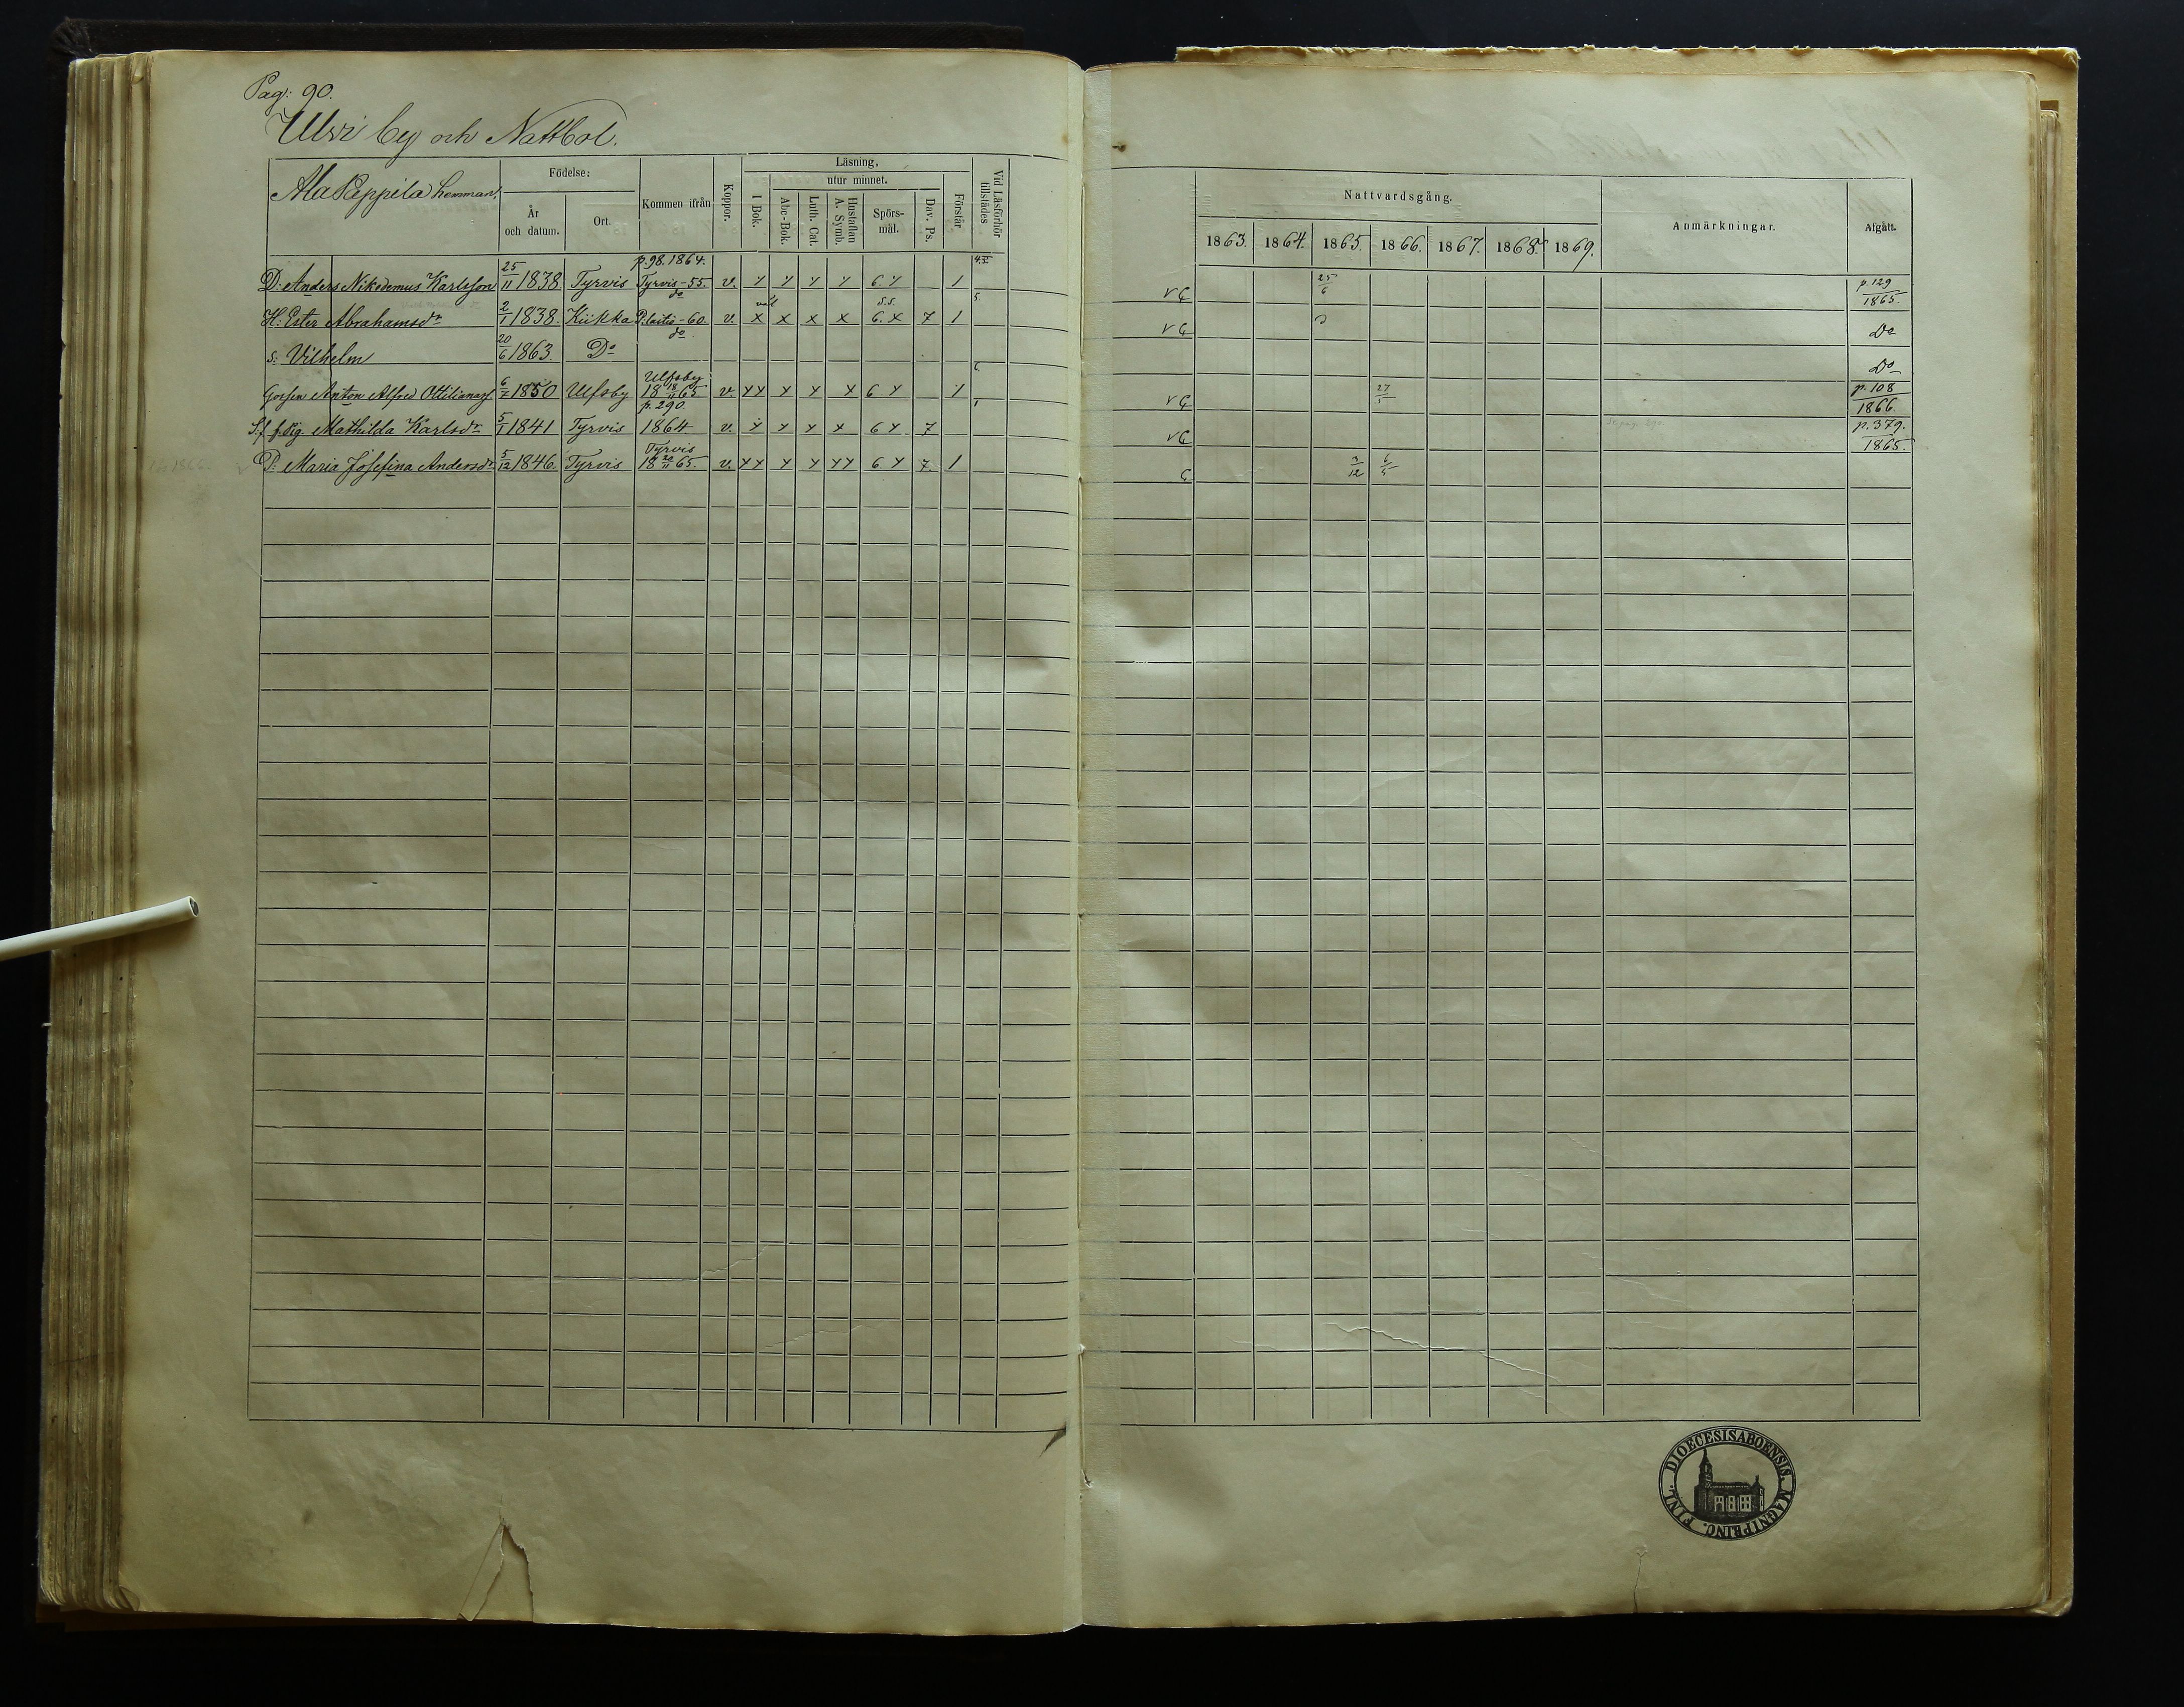 Pag: 90.
Ulvi by och Nattbol.
Ala Pappila hemman.
Födelse:
År och datum.
Ort.
Kommen ifrån
Koppor.
Läsning,
utur minnet.
I Bok.
Abc-Bok.
Luth. Cat.
Hustaflan A. Symb.
Spörsmål.
Dav. Ps.
Förstår
Vid Läsförhör tillstädes
Nattvardsgång.
1863. 1864. 1865. 1866. 1867. 1868. 1869.
Anmärkningar.
Afgått.
p. 98. 1864.
D: Anders Nikodemus Karlsson 25/11 1838 Tyrvis Tyrvis - 55. v. 6 1 25/6 p. 129 1865.
do
H: Ester Abrahamsdr 2/1 1838. Kiikka - 60. v. x x x x 6. x 7 1 Do
do
s: Vilhelm 20/6 1863. Do Do
Ulfsby
Gossen Anton Alfred 6/7 1850 Ulfsby 18 18/11 65 v. 6 1 27/5 p. 108 1866.
p. 290.
Pig. Mathilda Karlsdr 5/1 1841 Tyrvis 1864 v. 6 7 p. 379. 1865.
Tyrvis
P: Maria Josefina Andersdr 5/12 1846. Tyrvis 18 20/11 65. v. 6 7. 1 3/12 6/5
DIOECESIS ABOENSIS. MAGNI PRINC. FINL.